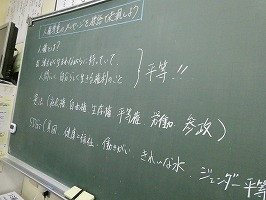 人権学習のメッセージを標語で発信しよう
人権とは?
誰もが生まれながらに持っていて、
人間として自分らしく生きる権利のこと
平等!!
憲法(自由権 自由権 生存権 平等権 労働 参政)
SDGs(貧困、健康と福祉、働きがい きれいな水、ジェンダー平等